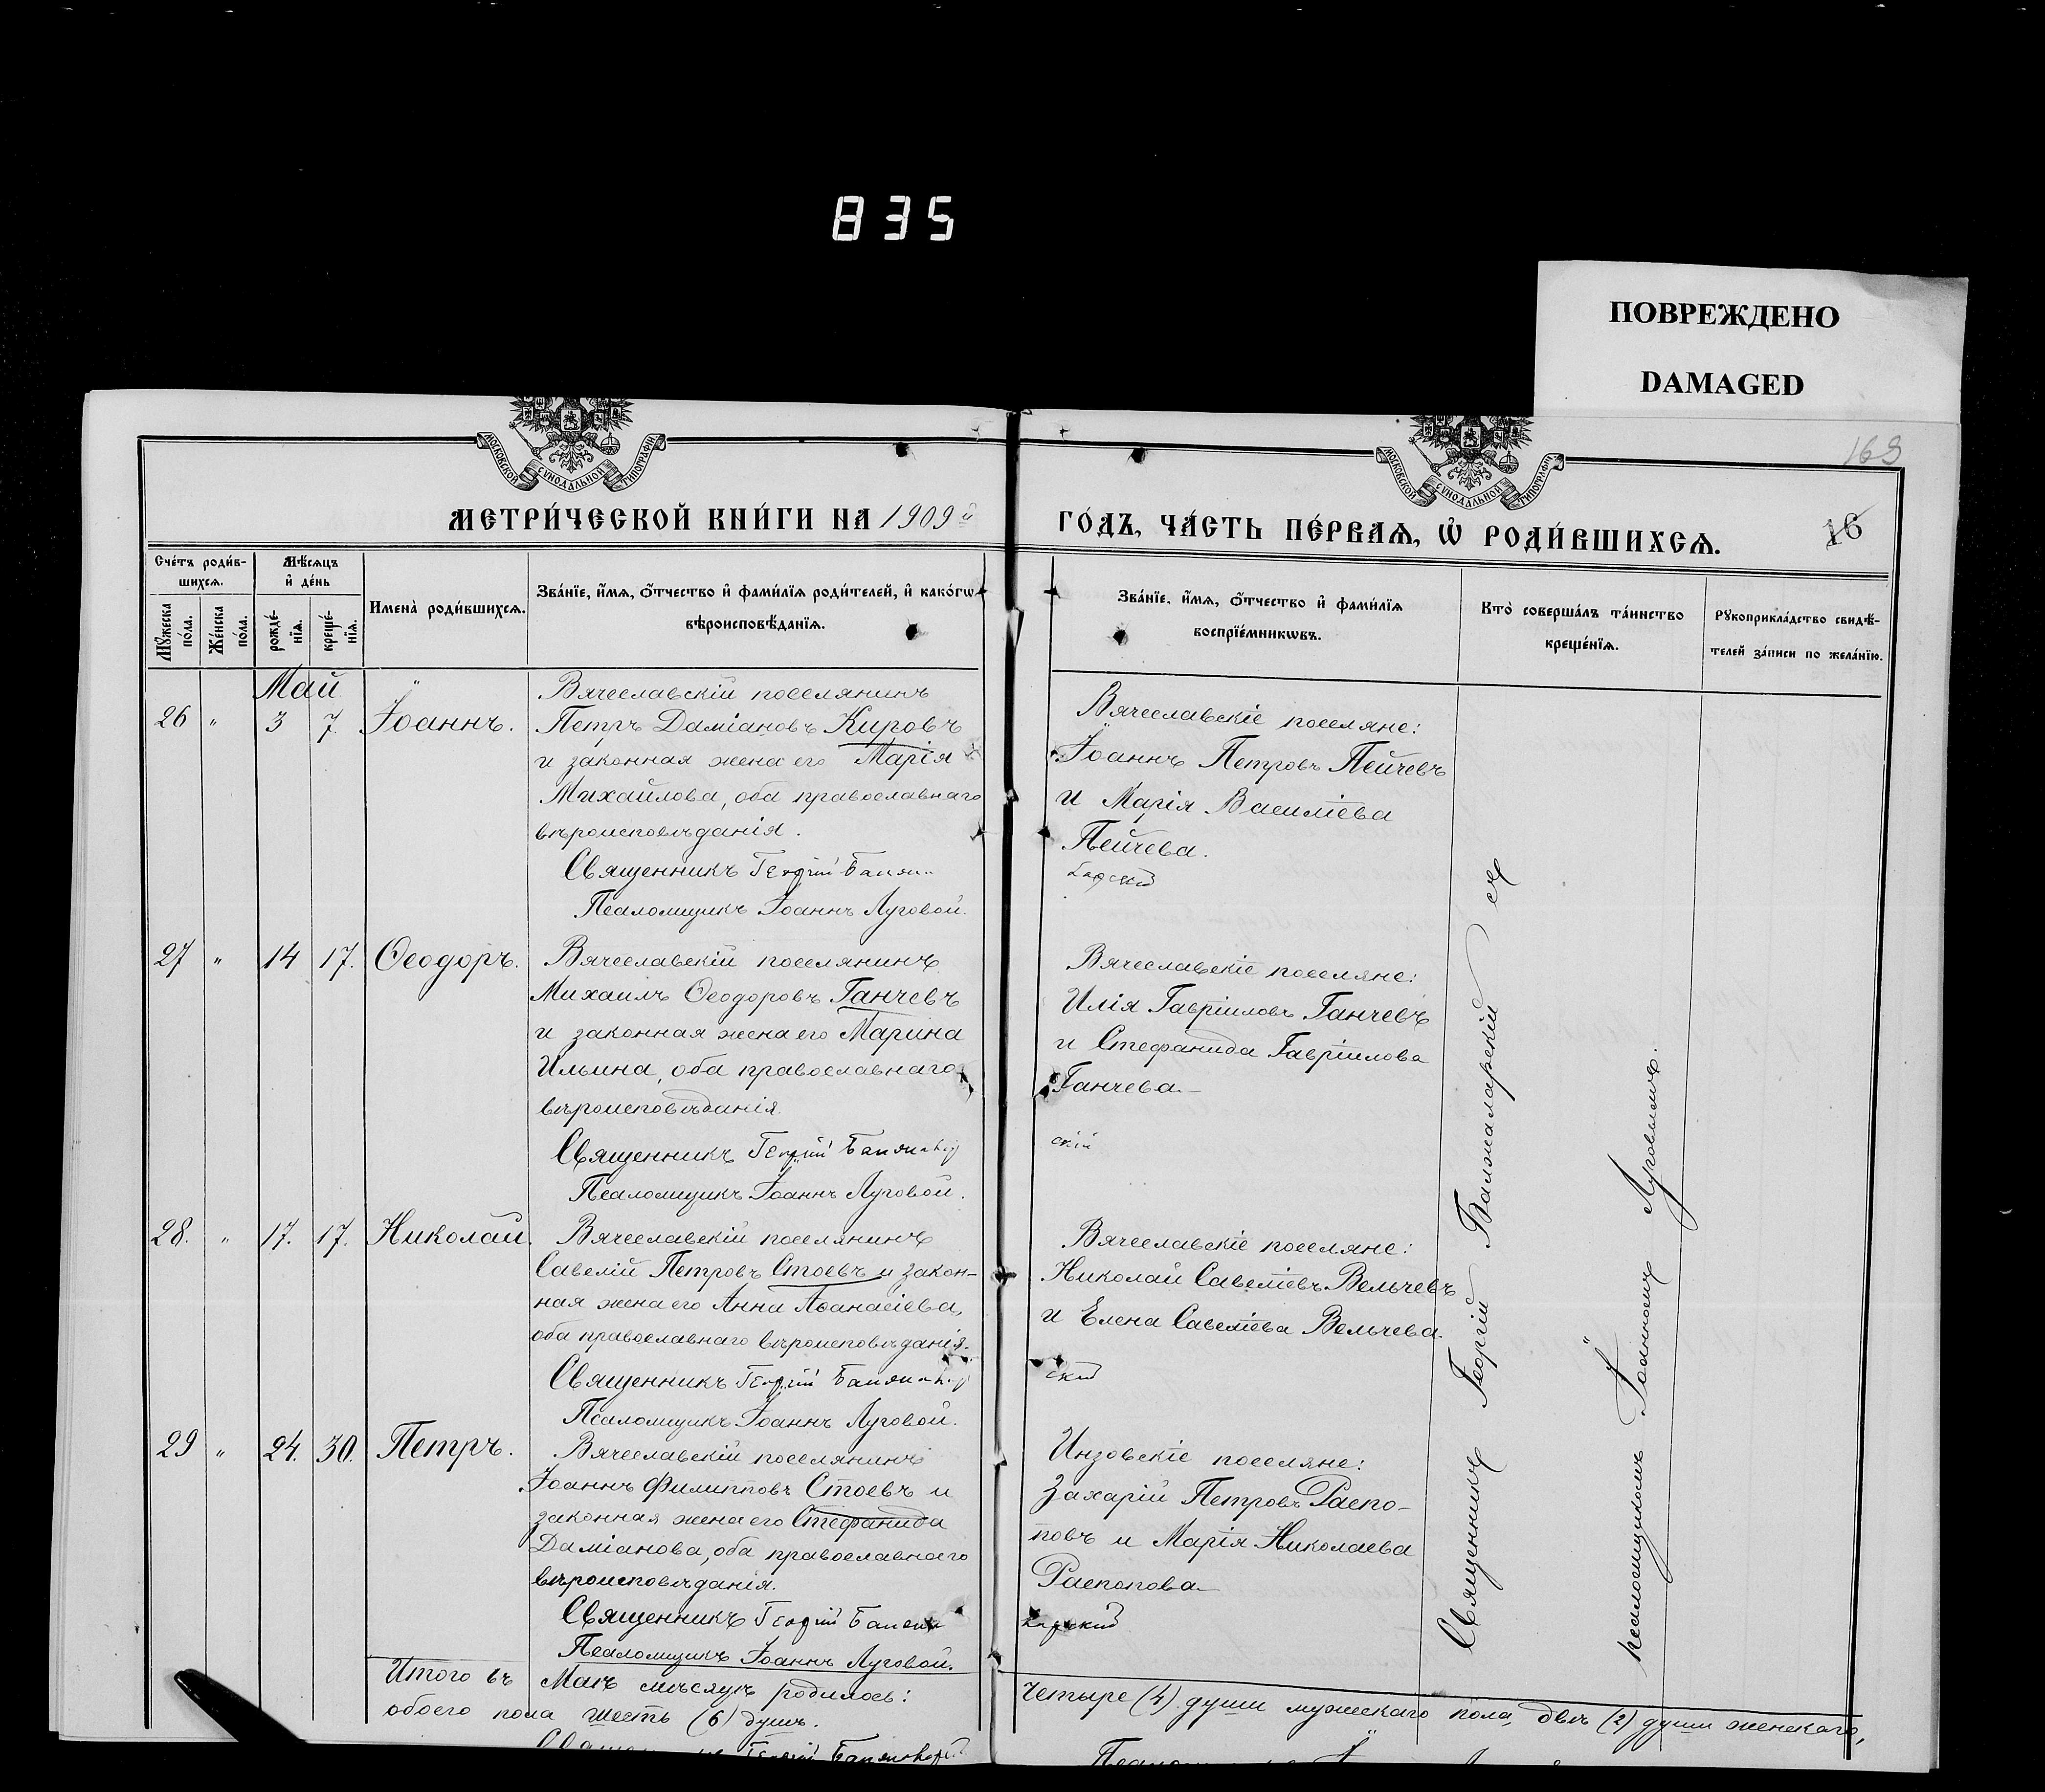 835
ПОВРЕЖДЕНО
DAMAGED
169
МОСКОВСКОЙ СУНОДАЛЬНОЙ ТИПОГРАФІИ
МОСКОВСКОЙ СУНОДАЛЬНОЙ ТИПОГРАФІИ
МЕТРИ́ЧЕСКОЙ КНИ́ГИ НА 1909й
ГО́ДЪ, ЧА́СТЬ ПЕ́РВАѦ, Ѡ РОДИ́ВШИХСѦ.
16
Сче́тъ роди́в-
шихсѧ.
Мѣ́сѧцъ
и҆ де́нь
Мꙋ́жеска
по́ла.
Же́нска
по́ла.
рожде́-
нїѧ.
креще́-
нїѧ.
Имена̀ роди́вшихсѧ.
Зва́нїе, и҆́мѧ, ѻ҆́тчество и҆ фами́лїѧ роди́телей, и҆ како́гѡ
вѣроисповѣ́данїѧ.
Зва́нїе, и҆́мѧ, ѻ҆́тчество и҆ фами́лїѧ
воспрїе́мникѡвъ.
Кто̀ соверша́лъ та́инство
креще́нїѧ.
Рꙋкоприкла́дство свидѣ́-
телей за́писи по жела́нїю.
Май
26 " 3 7. Іоаннъ.
Вячеславскій поселянинъ
Петръ Даміановъ Кировъ
и законная жена его Марія
Михайлова, оба православнаго
вѣроисповѣданія.
Священникъ Георгій Балжа-
Псаломщикъ Іоаннъ Луговой.
Вячеславскіе поселяне:
Іоаннъ Петровъ Пейчевъ
и Марія Василіева
Пейчева.
ларскій
27 " 14 17. Ѳеодоръ.
Вячеславскій поселянинъ
Михаилъ Ѳеодоровъ Ганчевъ
и законная жена его Марина
Ильина, оба православнаго
вѣроисповѣданія.
Священникъ Георгій Балжалар
Псаломщикъ Іоаннъ Луговой.
Вячеславскіе поселяне:
Илія Гавріиловъ Ганчевъ
и Стефанида Гавріилова
Ганчева.
скій
28. " 17. 17. Николай.
Вячеславскій поселянинъ
Савелій Петровъ Стоевъ и закон-
ная жена его Анна Аѳанасіева,
оба православнаго вѣроисповѣданія.
Священникъ Георгій Балжалар
Псаломщикъ Іоаннъ Луговой.
Вячеславскіе поселяне:
Николай Савеліевъ Вельчевъ
и Елена Савеліева Вельчева.
скій
29 " 24. 30. Петръ.
Вячеславскій поселянинъ
Іоаннъ Филипповъ Стоевъ и
законная жена его Стефанида
Даміанова, оба православнаго
вѣроисповѣданія.
Священникъ Георгій Балжа
Псаломщикъ Іоаннъ Луговой.
Инзовскіе поселяне:
Захарій Петровъ Распо-
повъ и Марія Николаева
Распопова.
ларскій
Священникъ Георгій Балжаларскій съ
псаломщикомъ Іоанномъ Луговымъ.
Итого въ Маѣ мѣсяцѣ родилось:
обоего пола шесть (6) душъ.
четыре (4) души мужескаго пола, двѣ (2) души женскаго,
Священникъ Георгій Балжаларскій